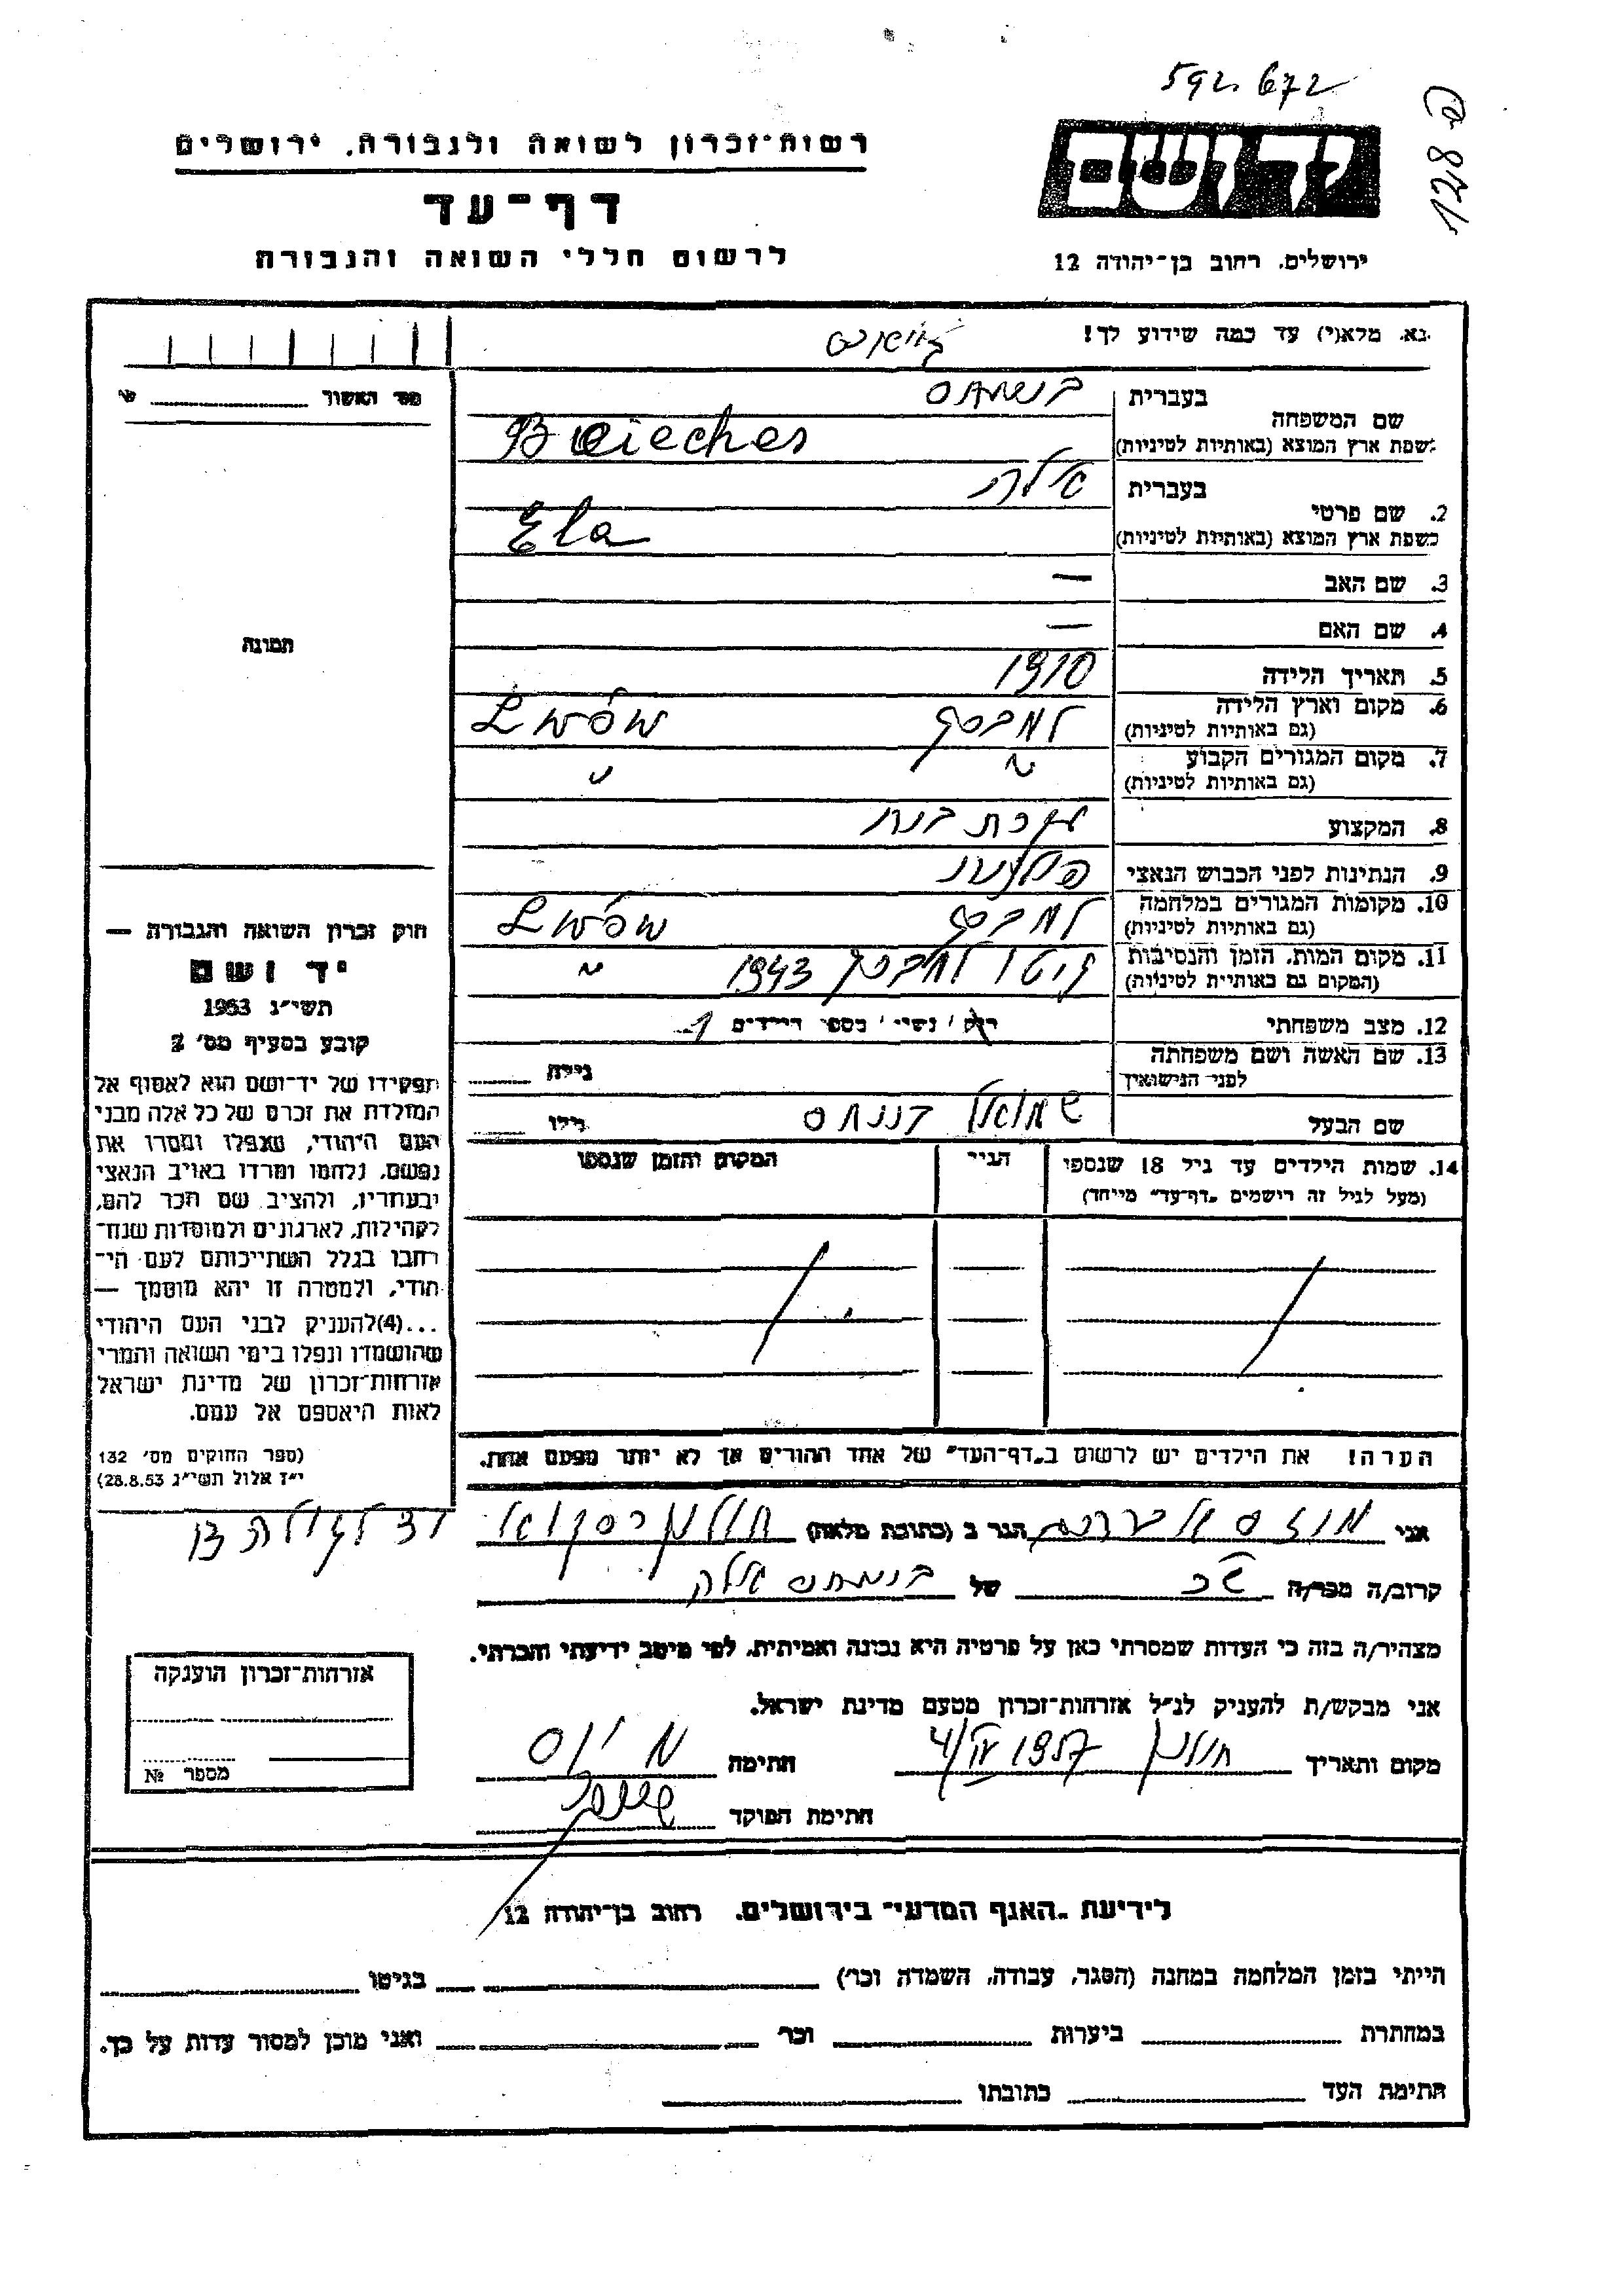 592.672
128 ם
רשות-זכרון לשואה ולגבורה. ירושלים
דף-עד
לרשום חללי השואה והגבורה
יד ושם
ירושלים. רחוב בן-יהודה 12
נא. מלא(י) עד כמה שידוע לך!
מס' האשור
שם המשפחה
בעברית
בשפת ארץ המוצא (באותיות לטיניות) Baieches
2. שם פרטי
בעברית אלה
בשפת ארץ המוצא (באותיות לטיניות) Ela
3. שם האב —
4. שם האם —
5. תאריך הלידה 1910
6. מקום וארץ הלידה
(גם באותיות לטיניות) למברג Lwów
7. מקום המגורים הקבוע
(גם באותיות לטיניות) " "
8. המקצוע עקרת בית
9. הנתינות לפני הכבוש הנאצי פולנית
10. מקומות המגורים במלחמה
(גם באותיות לטיניות) למברג Lwów
11. מקום המות. הזמן והנסיבות
(המקום גם באותיות לטיניות) גיטו למברג 1943 "
12. מצב משפחתי רוק / נשוי / מספר הילדים 1
13. שם האשה ושם משפחתה
לפני הנישואין
גילה
שם הבעל שמואל
גילו
14. שמות הילדים עד גיל 18 שנספו
(מעל לגיל זה רישמים „דף-עד" מייחד)
הגיל
המקום והזמן שנספו
הערה! את הילדים יש לרשום ב„דף-העד" של אחד ההורים אך לא יותר מפעם אחת.
תמונה
חוק זכרון השואה והגבורה —
יד ושם
תשי"ג 1953
קובע בסעיף מס' 2
תפקידו של יד-ושם הוא לאסוף אל
המולדת את זכרם של כל אלה מבני
העם היהודי, שנפלו ומסרו את
נפשם, נלחמו ומרדו באויב הנאצי
ובעוזריו, ולהציב שם וזכר להם,
לקהילות, לארגונים ולמוסדות שנח-
רבו בגלל השתייכותם לעם הי-
הודי, ולמטרה זו יהא מוסמך —
...(4)להעניק לבני העם היהודי
שהושמדו ונפלו בימי השואה והמרי
אזרחות-זכרון של מדינת ישראל
לאות היאספם אל עמם.
(ספר החוקים מס' 132
י"ז אלול תשי"ג 28.8.53)
אני הגר ב (כתובת מלאה)
קרוב/ה מכר/ה של אלה
מצהיר/ה בזה כי העדות שמסרתי כאן על פרטיה היא נכונה ואמיתית, לפי מיטב ידיעתי והכרתי.
אני מבקש/ת להעניק לנ"ל אזרחות-זכרון מטעם מדינת ישראל.
מקום ותאריך חולון 4/IV 1957 חתימה
חתימת הפוקד
אזרחות-זכרון הוענקה
מספר №
לידיעת „האגף המדעי" בירושלים. רחוב בן-יהודה 12
הייתי בזמן המלחמה במחנה (הסגר, עבודה, השמדה וכו') בגיטו
במחתרת ביערות וכו' ואני מוכן למסור עדות על כך.
חתימת העד כתובתו